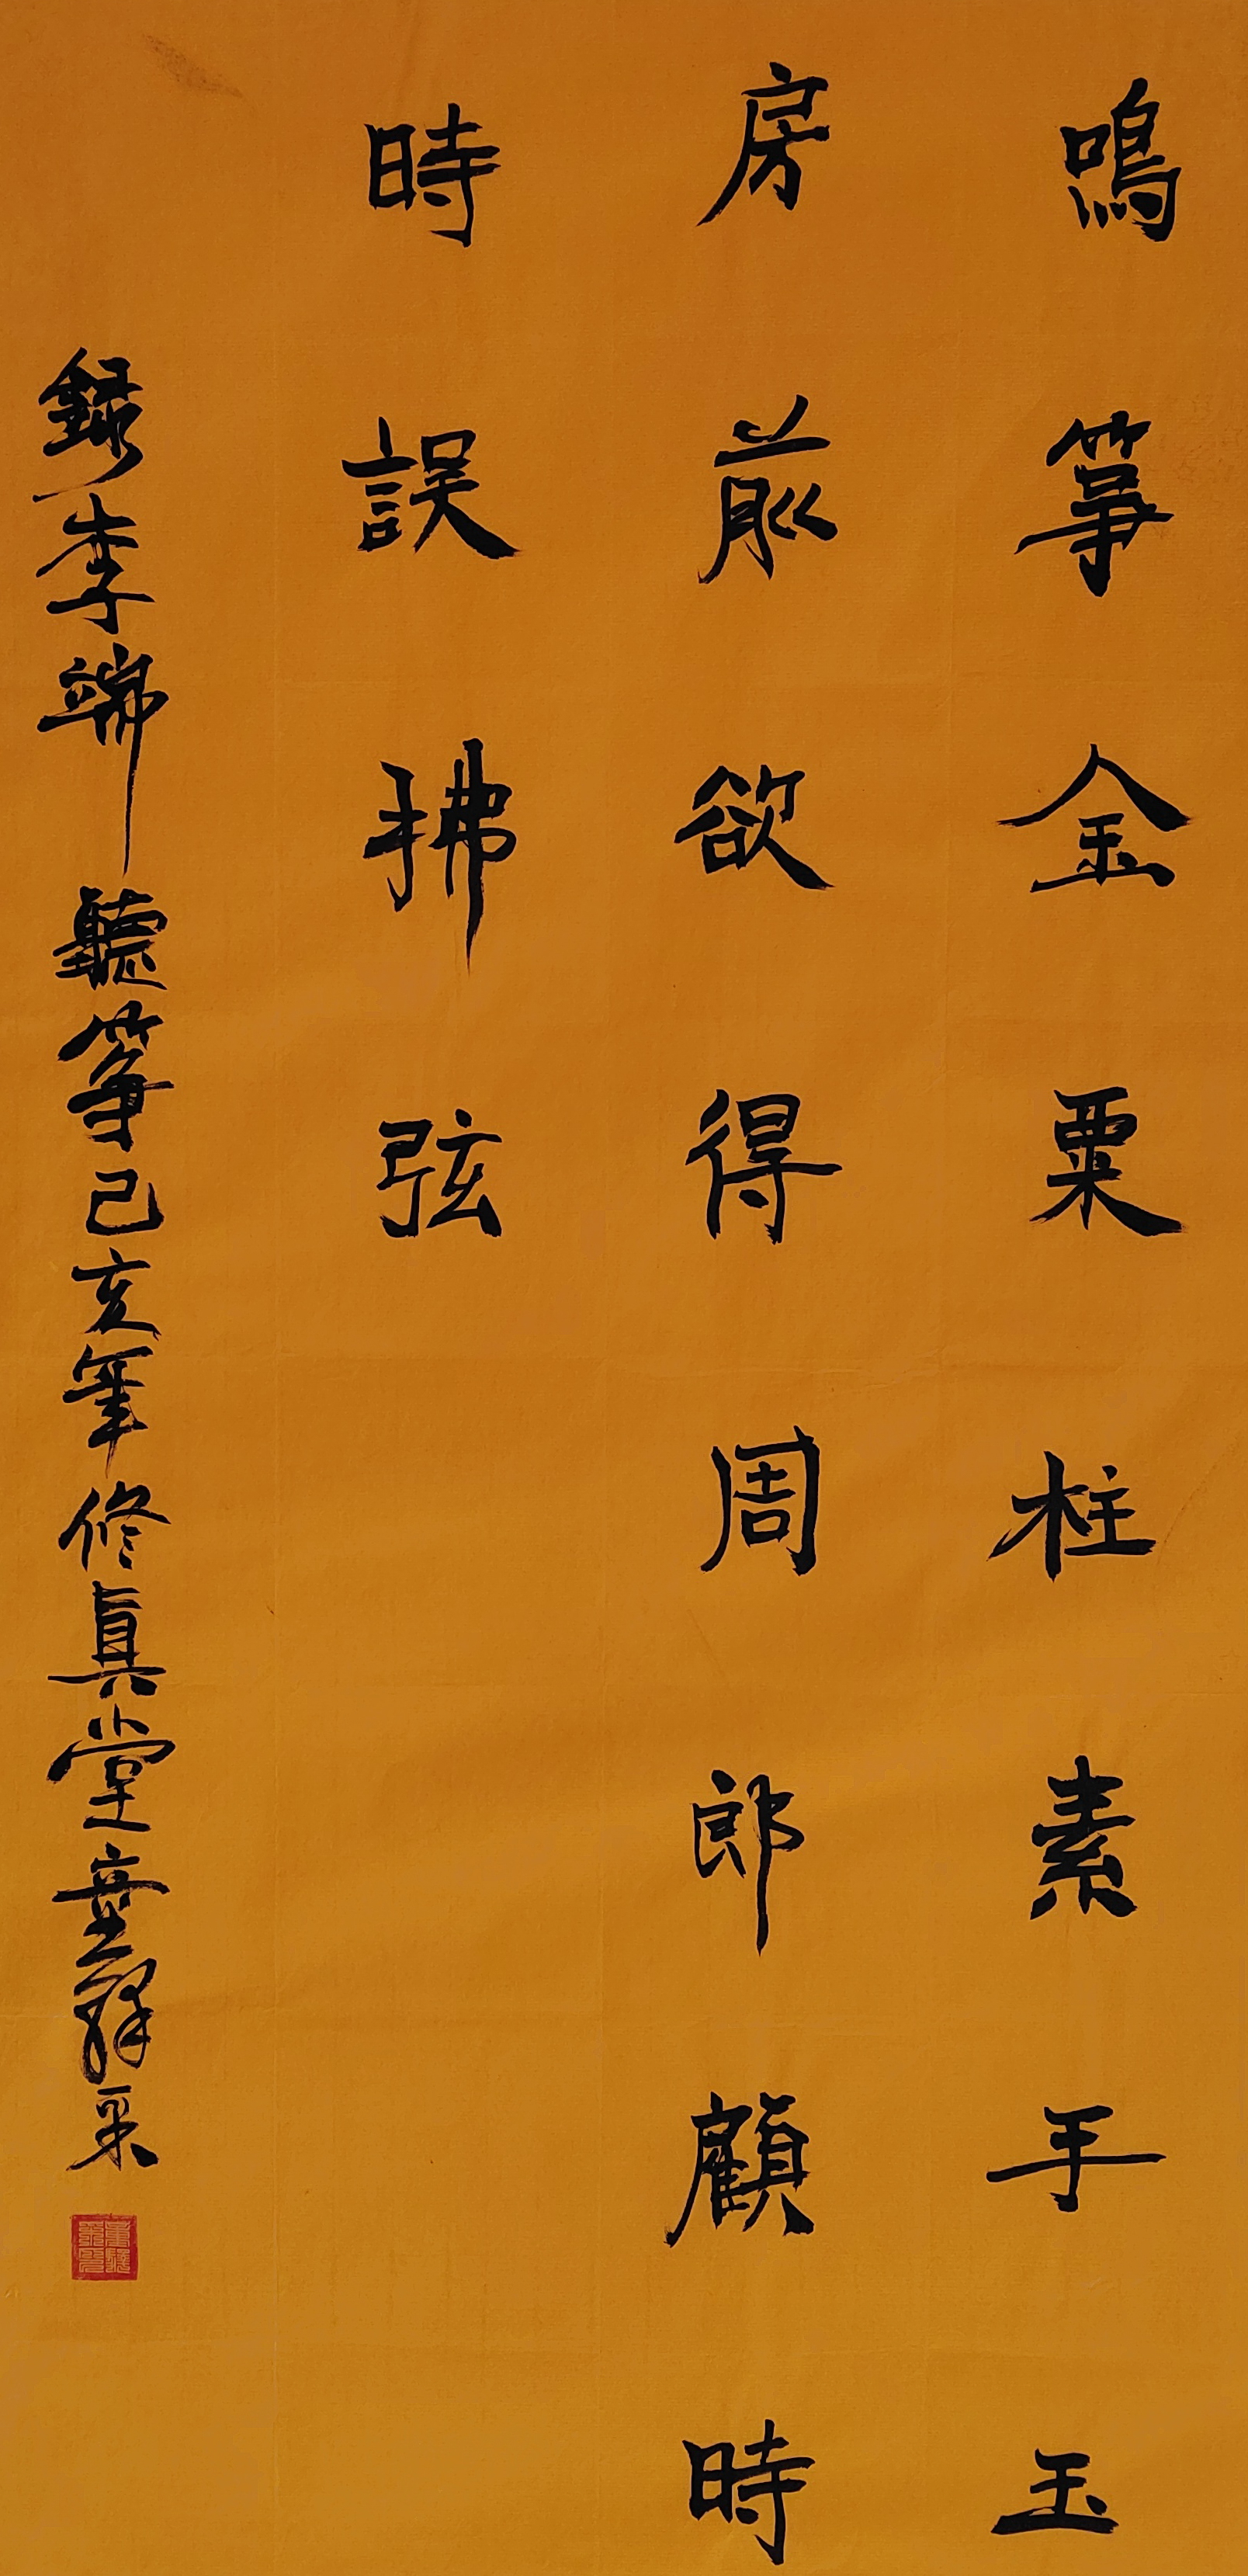 鳴筝金粟柱素手玉
房前欲得周郎顧時
時誤拂弦
錄李端聽筝己亥年修真堂童釋采